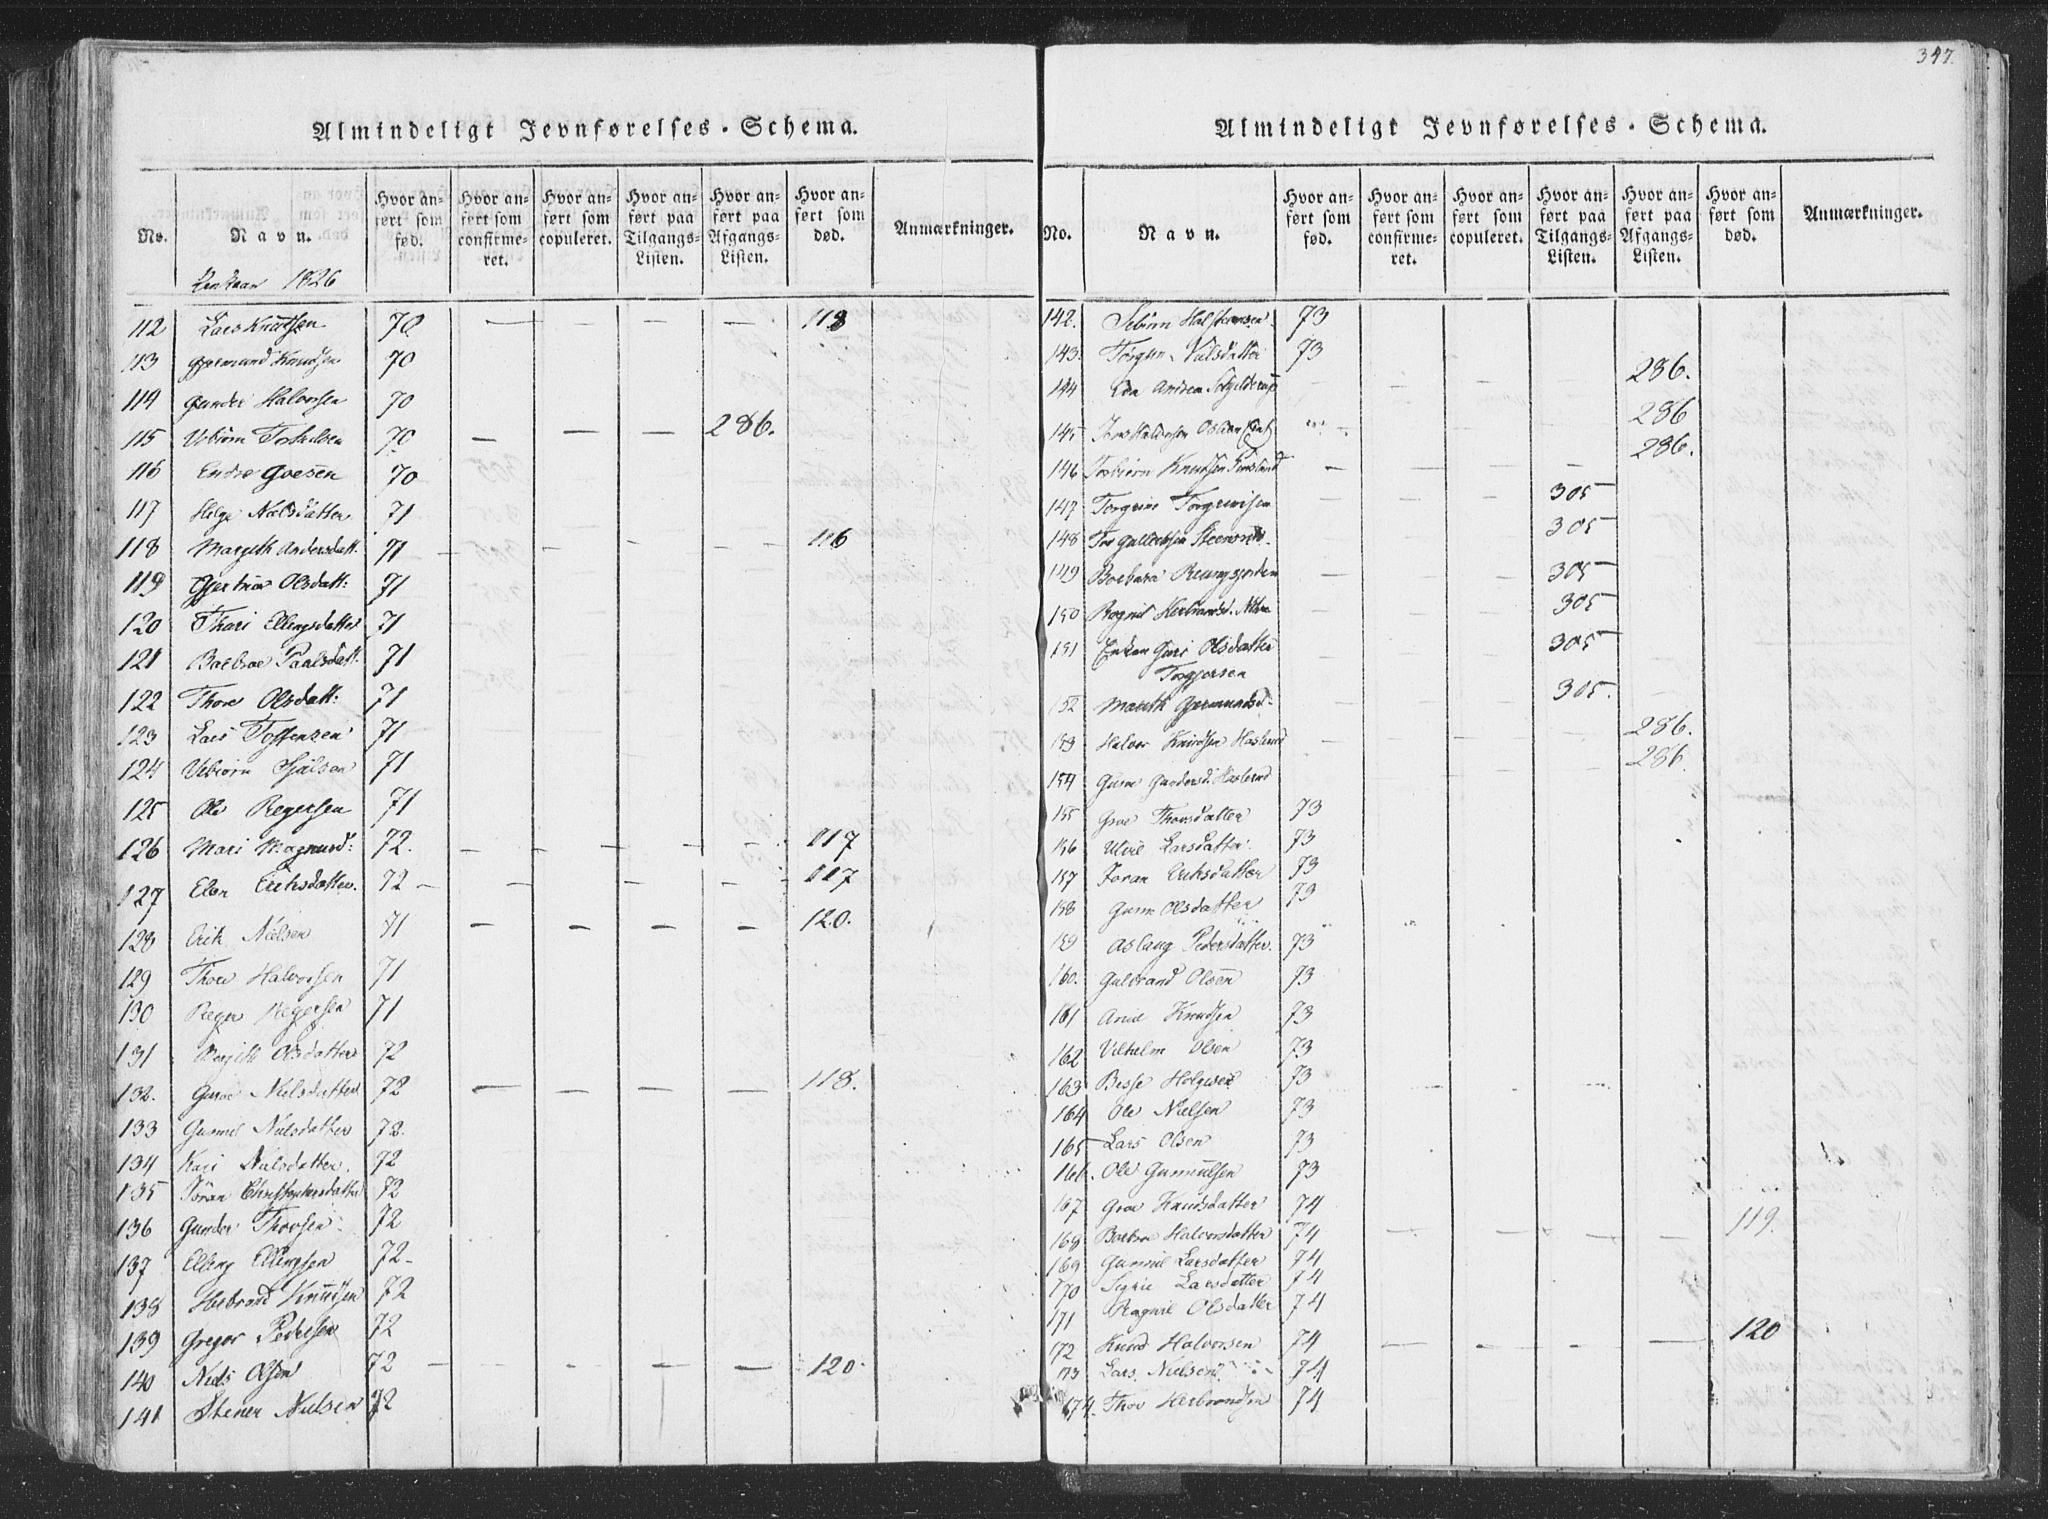 347.
Almindeligt Jevnførelses-Schema.
No. Navn. Hvor anført som fød. Hvor anført som confirmeret. Hvor anført som copuleret. Hvor anført paa Tilgangs-Listen. Hvor anført paa Afgangs-Listen. Hvor anført som død. Anmærkninger.
1826
112 Lars Knutsen 70 — — — — 118
113 Gjermund Knudsen 70
114 Gunder Halvorsen 70
115 Vebiörn Torkelsen 70 — — — 286.
116 Endre Goesen 70
117 Helge Nielsdatter 71
118 Margith Andersdatt. 71 - - - - - 116
119 Gjertrud Olsdatt: 71
120 Thari Ellingsdatter 71
121 Barbroe Paalsdatt. 71
122 Thore Olsdatt: 71
123 Lars Tostensen 71
124 Vebiörn 71
125 Ole Regersen 71
126 Mari 72. - - - - 117
127 Elen Eriksdatter. 72 - - - - 117
128 Erik Nielsen 71 — — — — 120.
129 Thore Halvorsen 71
130 Reger Regersen 71
131 Bergith Olsdatter 72
132. Guroe Nielsdatter 72 — — — — 118.
133 Gunnil Nielsdatter 72.
134 Kari Nielsdatter. 72
135 Jöran Christophersdatter 72
136 Gunder Thorsen 72
137 Elling Ellingsen 72-
138 Herbrand Knudsen 72
139 Gregor Pedersen 72
140 Niels Olsen 72 - - - — — 120.
141 Stener Nielsen 72
Almindeligt Jevnførelses-Schema.
No. Navn. Hvor anført som fød. Hvor anført som confirmeret. Hvor anført som copuleret. Hvor anført paa Tilgangs-Listen. Hvor anført paa Afgangs-Listen. Hvor anført som død. Anmærkninger.
142. Halstensen. 73
143. Torgun Nielsdatter 73
144 Andrea 286.
145 286
146 Torbiörn Knudsen - - - - 286.
147 Torgrim Torgrimsen 305
148 Tor 305
149 Barbara 305
150 Ragnil 305
151 Enken Guri Olsdatter 305
Torgjersen
152 Marith Gjermundsd. 305.
153 Halvor Knudsen Haslerud 286.
154 Gundersd. Haslerud 286.
155 Groe Thorsdatter 73
156 Larsdatter. 73
157 Joran Eriksdatter 73
158 Olsdatter 73
159 Aslaug Pedersdatter. 73
160. Gulbrand Olsen 73
161 Arne Knudsen 73
162 Vilhelm Olsen 73
163 Besse 73
164 Ole Nielsen 73
165 Lars Olsen 73
166. Ole Gunnulsen 73
167 Groe Knudsdatter 74
168 Barbroe Halvorsdatter 74 - - - - 119
169 Gunnil Larsdatter 74
170 Sigrie Larsdatter 74
171 Ragnil Olsdatter 74
172 Knud Halvorsen 74 — - - — 120
173 Lars Nielsen 74
174. Thor Herbrandsen 74